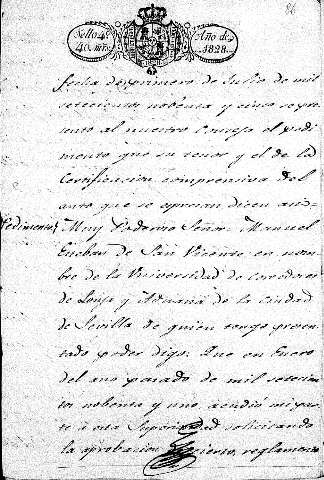 86
Sello 4º Año de
40. mrs. 1828.
fecha de primero de Julio de mil
setecientos nobenta y cinco se pre-
sento al nuestro Consejo el pedi-
mento que su tenor y el de la
Certificacion comprensiva del
auto que se expresan dicen asi=
Pedimento} Muy Poderoso Señor: Manuel
Esteban de San Vicente en nom-
bre de la Universidad de Corredores
de Lonja y Aduana de la Ciudad
de Sevilla de quien tengo presen-
tado poder digo: Que en Enero
del año pasado de mil setecien-
tos nobenta y uno, acudió mi par-
te á esta Superioridad solicitando
la aprobacion cierto reglamento